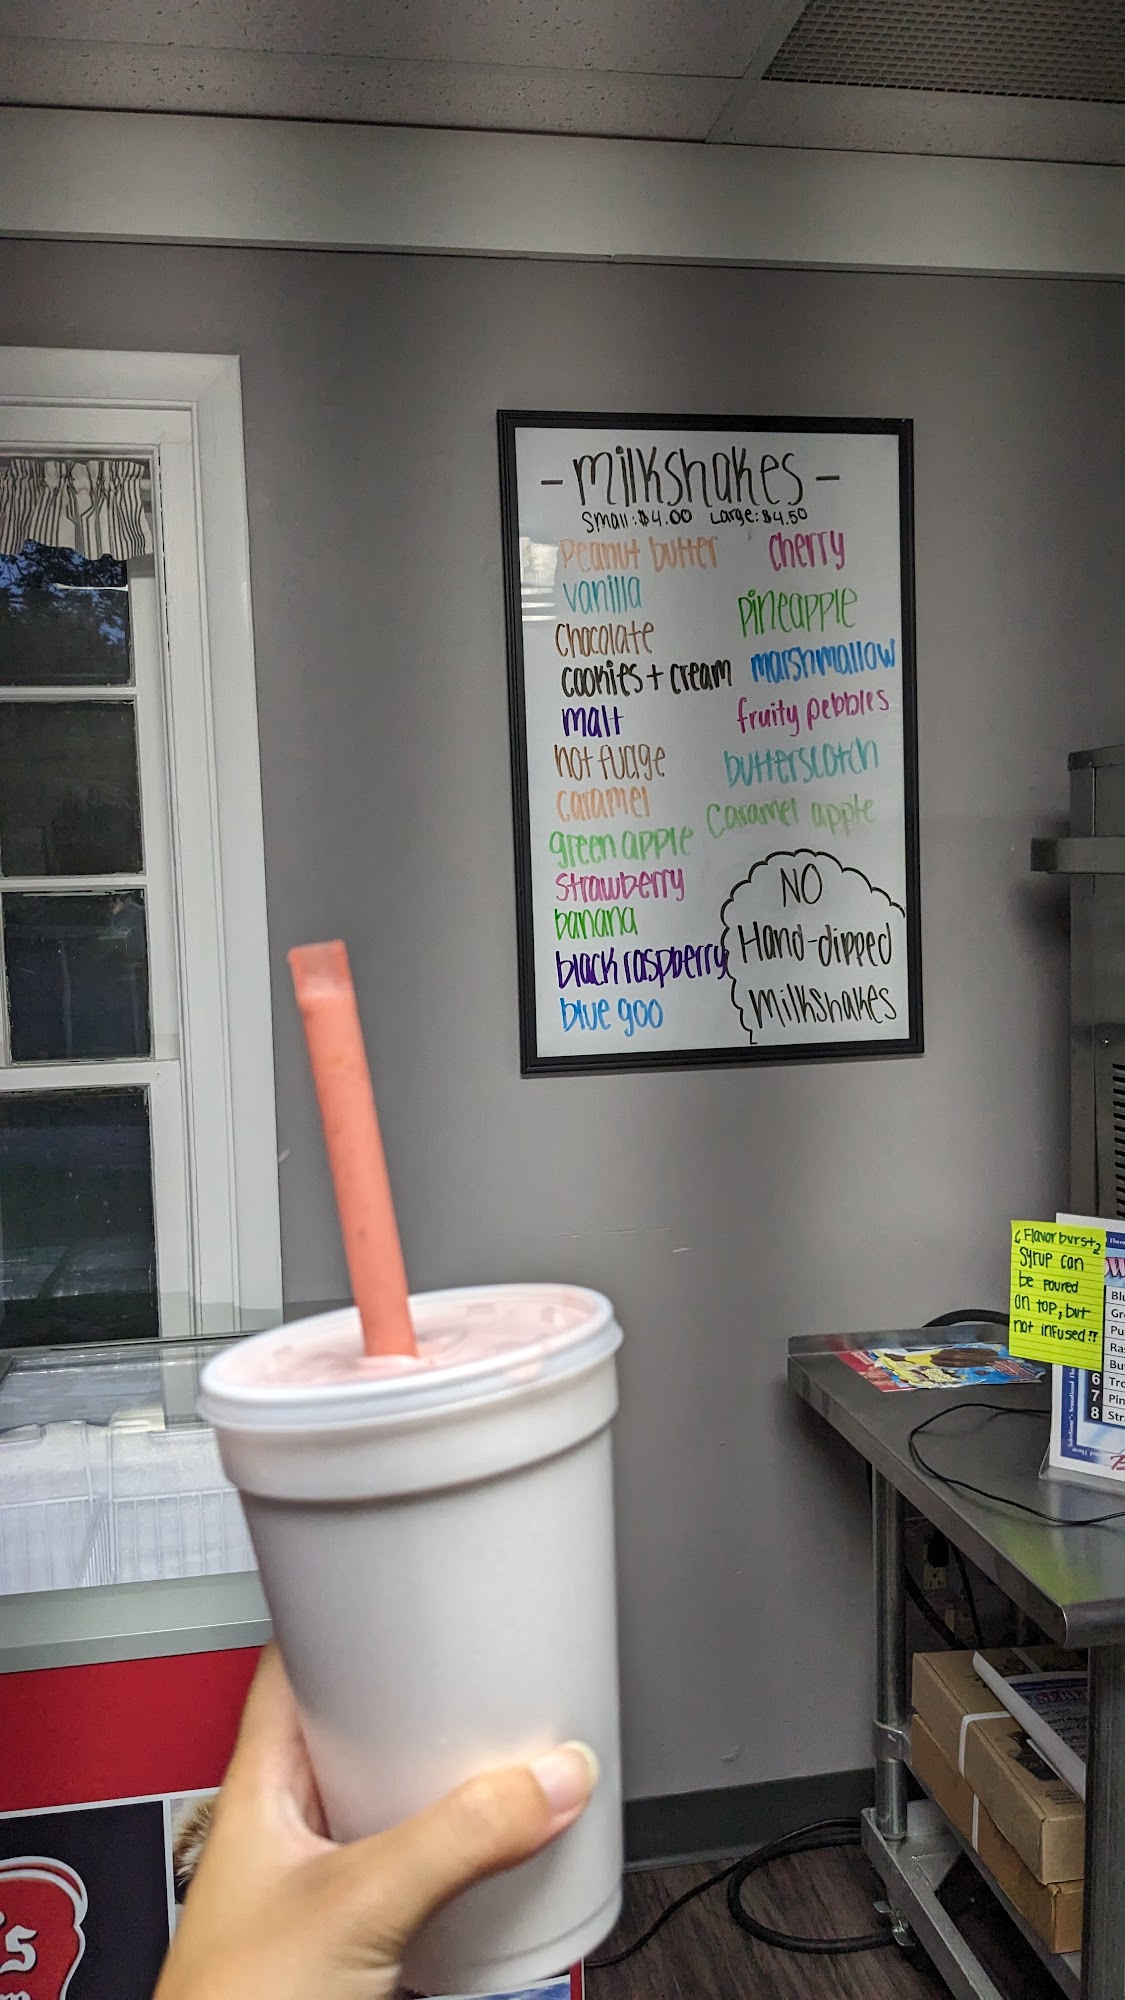 - milkshakes -
Small: $4.00 Large: $4.50
Peanut butter
vanilla
Chocolate
cookies + cream
malt
hot fudge
caramel
green apple
strawberry
banana
black raspberry
blue goo
cherry
pineapple
marshmallow
fruity pebbles
butterscotch
Caramel apple
NO
Hand-dipped
Milkshakes
Flavor burst
Syrup can
be poured
on top, but
not infused!!
6
7
8